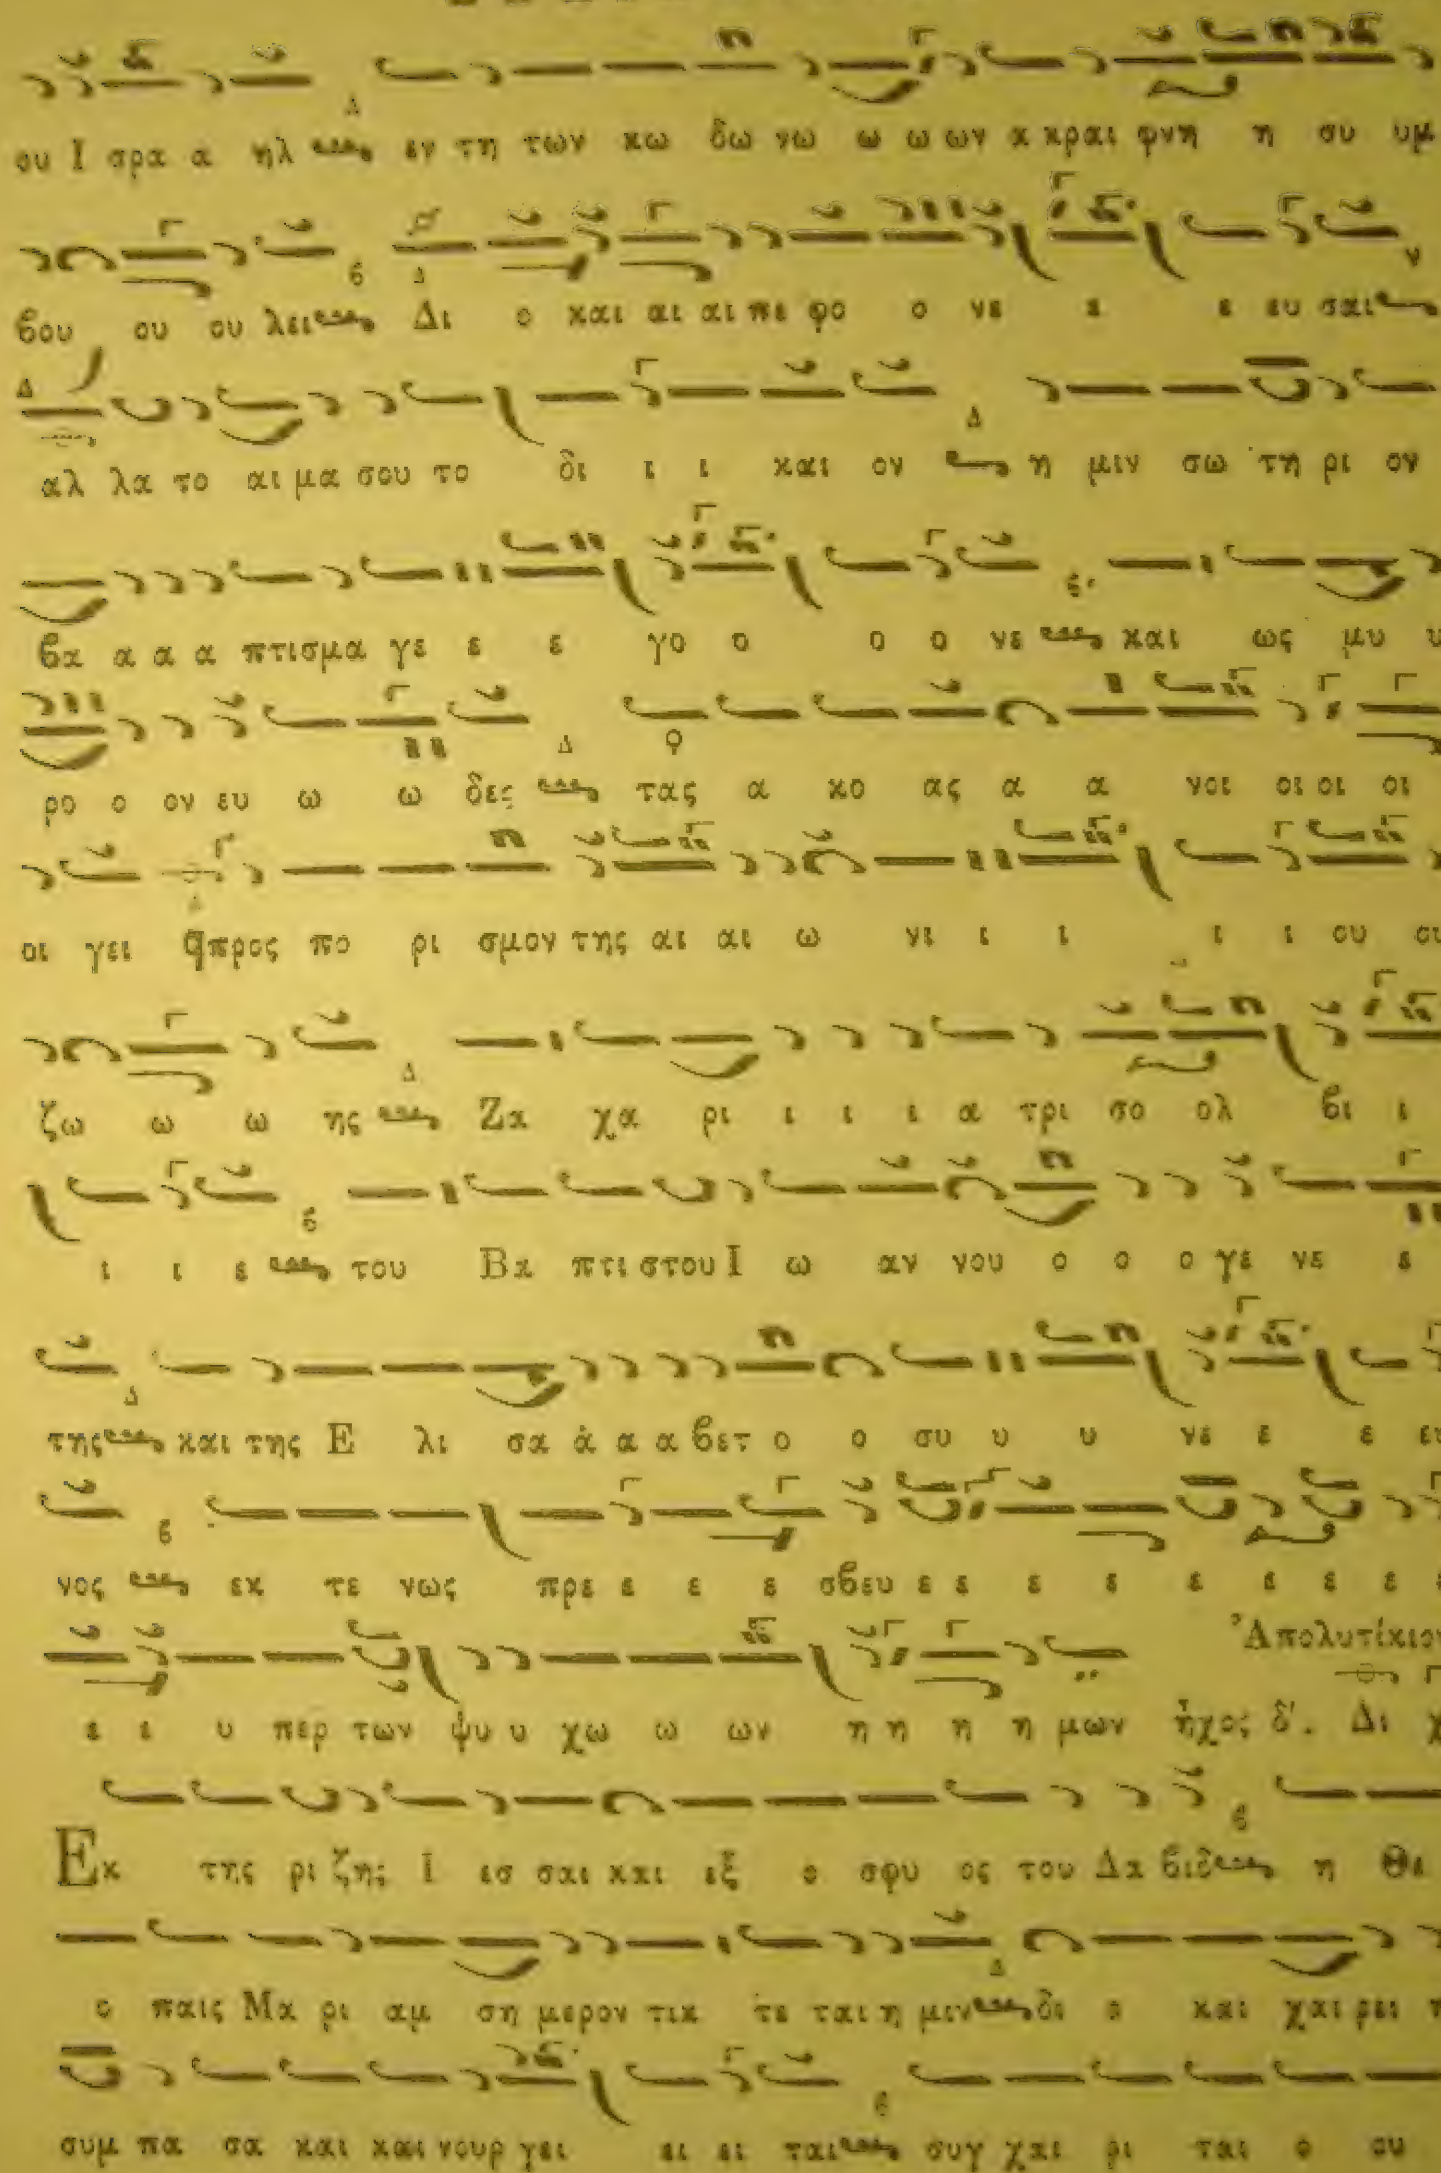 ου Ι σρα α ηλ εν τη των κω δω νω ω ω ων α κραι φνη η συ υμ
βου ου ου λει Δι ο και αι αι πε φο ο νε ε ε ευ σαι
αλ λα το αι μα σου το δι ι ι και ον η μιν σω τη ρι ον
βα α α α πτισμα γε ε ε γο ο ο ο νε και ως μυ υ
ρο ο ον ευ ω ω δες τας α κο ας α α νοι οι οι οι
οι γει προς πο ρι σμον της αι αι ω νι ι ι ι ι ου ου
ζω ω ω ης Ζα χα ρι ι ι ι α τρι σο ολ βι ι
ι ι ε του Βα πτι στου Ι ω αν νου ο ο ο γε νε ε
της και της Ε λι σα ά α α βετ ο ο συ υ υ νε ε ε ευ
νος εκ τε νως πρε ε ε ε σβευ ε ε ε ε ε ε ε ε ε
Ἀπολυτίκιον
ε ε υ περ των ψυ υ χω ω ων η η η η μων ἦχος δ'. Δι χ
Εκ της ρι ζης Ι εσ σαι και εξ ο σφυ ος του Δα βιδ η Θε
ο παις Μα ρι αμ ση μερον τικ τε ται η μιν δι ο και χαι ρει η
συμ πα σα και και νουρ γει ει ει ται συγ χαι ρι ται ο ου